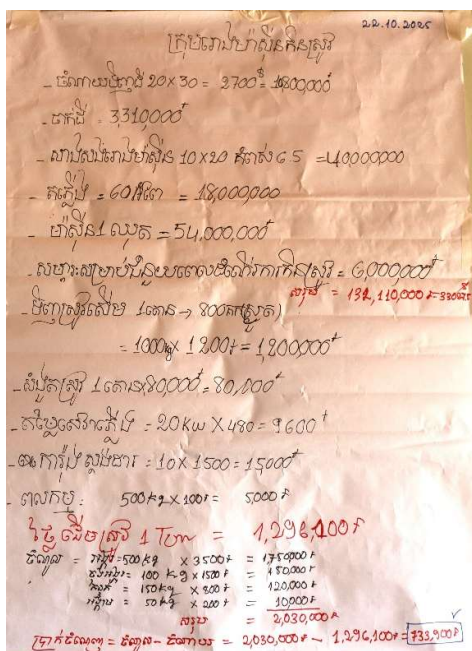 22.10.2025
ក្រុមរោងម៉ាស៊ីនកិនស្រូវ
- ចំណាយទិញដី 20 x 30 = 2700$ = 10800,000៛
- ចាក់ដី = 3,310,000៛
- សាងសង់រោងម៉ាស៊ីន 10 x 20 កំពស់ 6.5 = 40000000
- តភ្លើង = 60 = 18,000,000
- ម៉ាស៊ីន 1 ឈុត = 54,000,000៛
- សម្ភារៈសម្រាប់ជំនួយពេលដំណើរការកិនស្រូវ = 6,000,000៛
សរុប = 132,110,000៛ = 330
- ទិញស្រូវសើម 1តោន → 800គ(ស្ងួត)
= 1000kg x 1200៛ = 1,200,000៛
- សំងួតស្រូវ 1តោន x 80,000៛ = 80,000៛
- តម្លៃសេវាភ្លើង = 20 Kw x 480 = 9600៛
- ការ៉ុង = 10 x 1500 = 15000៛
- ពលកម្ម : 500kg x 100៛ = 5,000៛
ថ្លៃដើមស្រូវ 1 Ton = 1,296,100៛
ចំណូល = អង្ករ = 500kg x 3500៛ = 1,750,000៛
ចុងអង្ករ = 100 kg x 1500៛ = 150,000៛
កន្ទក់ = 150kg x 800៛ = 120,000៛
អង្កាម = 50kg x 200៛ = 10,000៛
សរុប = 2,030,000៛
ប្រាក់ចំណេញ = ចំណូល - ចំណាយ = 2,030,000៛ - 1,296,100៛ = 733,900៛